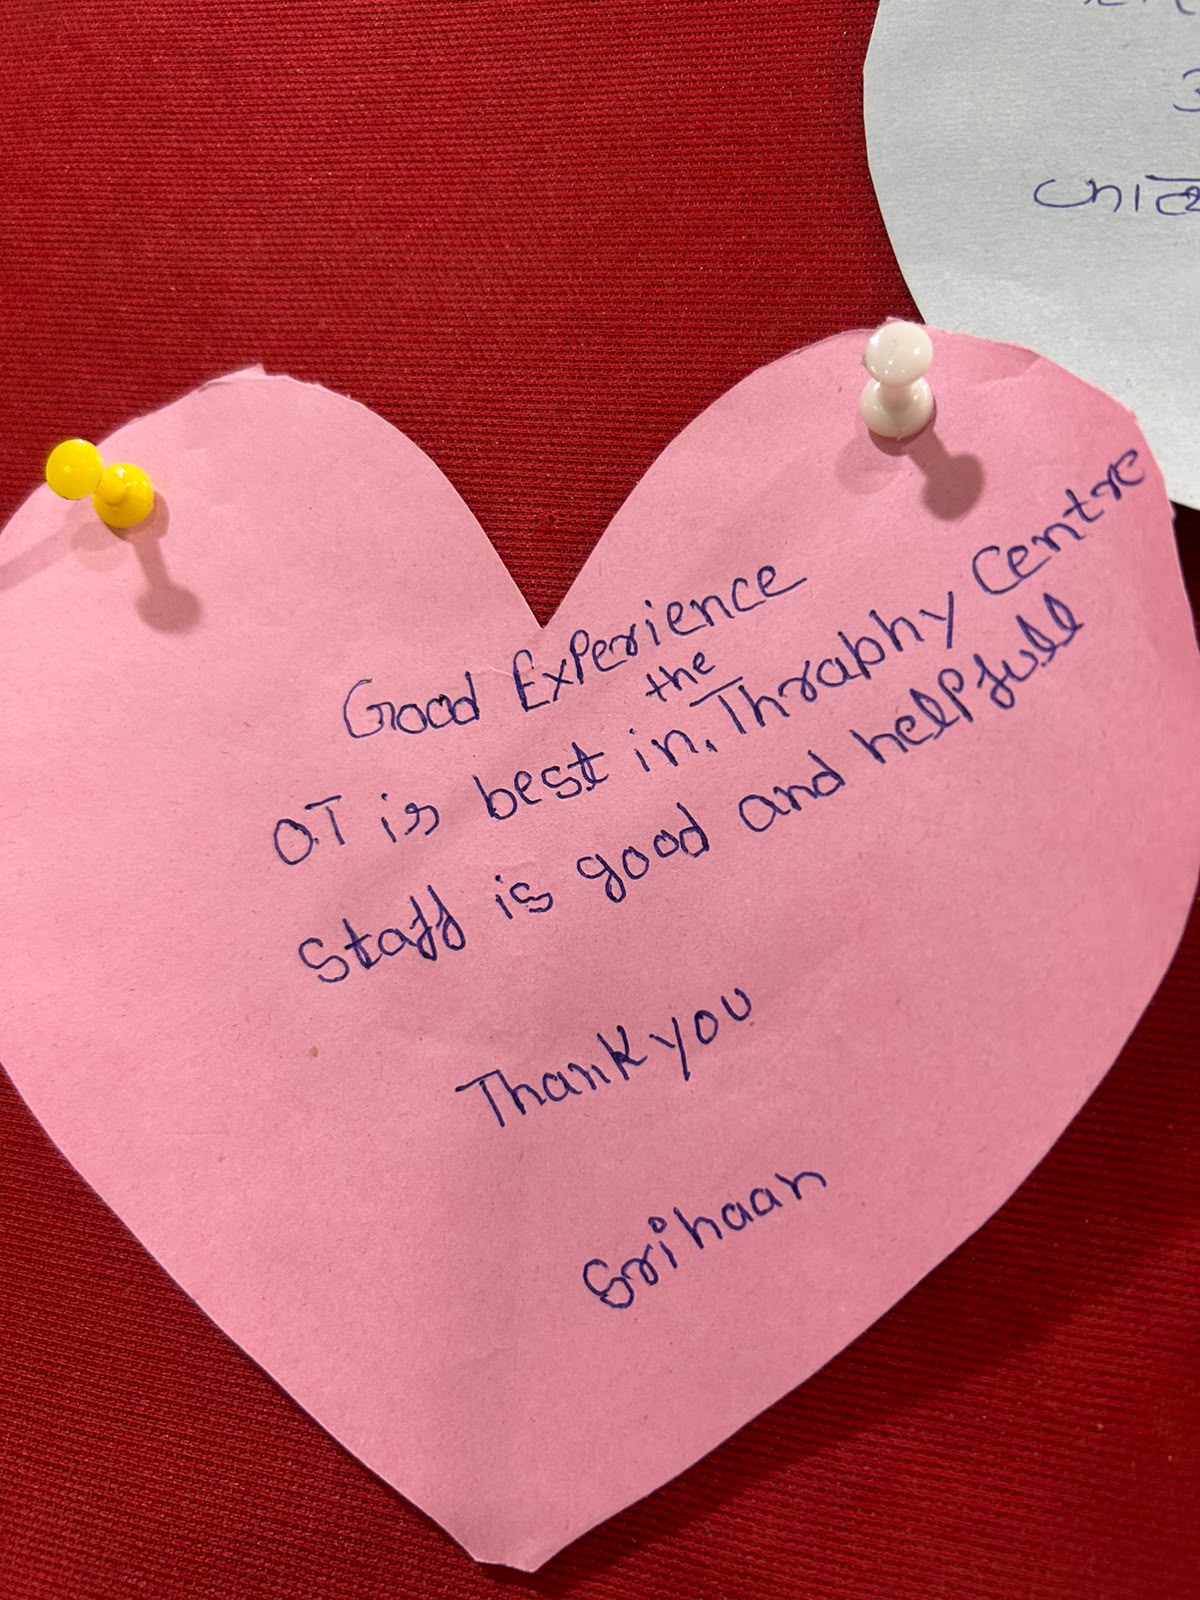 Good Experience
OT is best in the Thraphy Centre
Staff is good and helpfull
Thank you
Srihaan